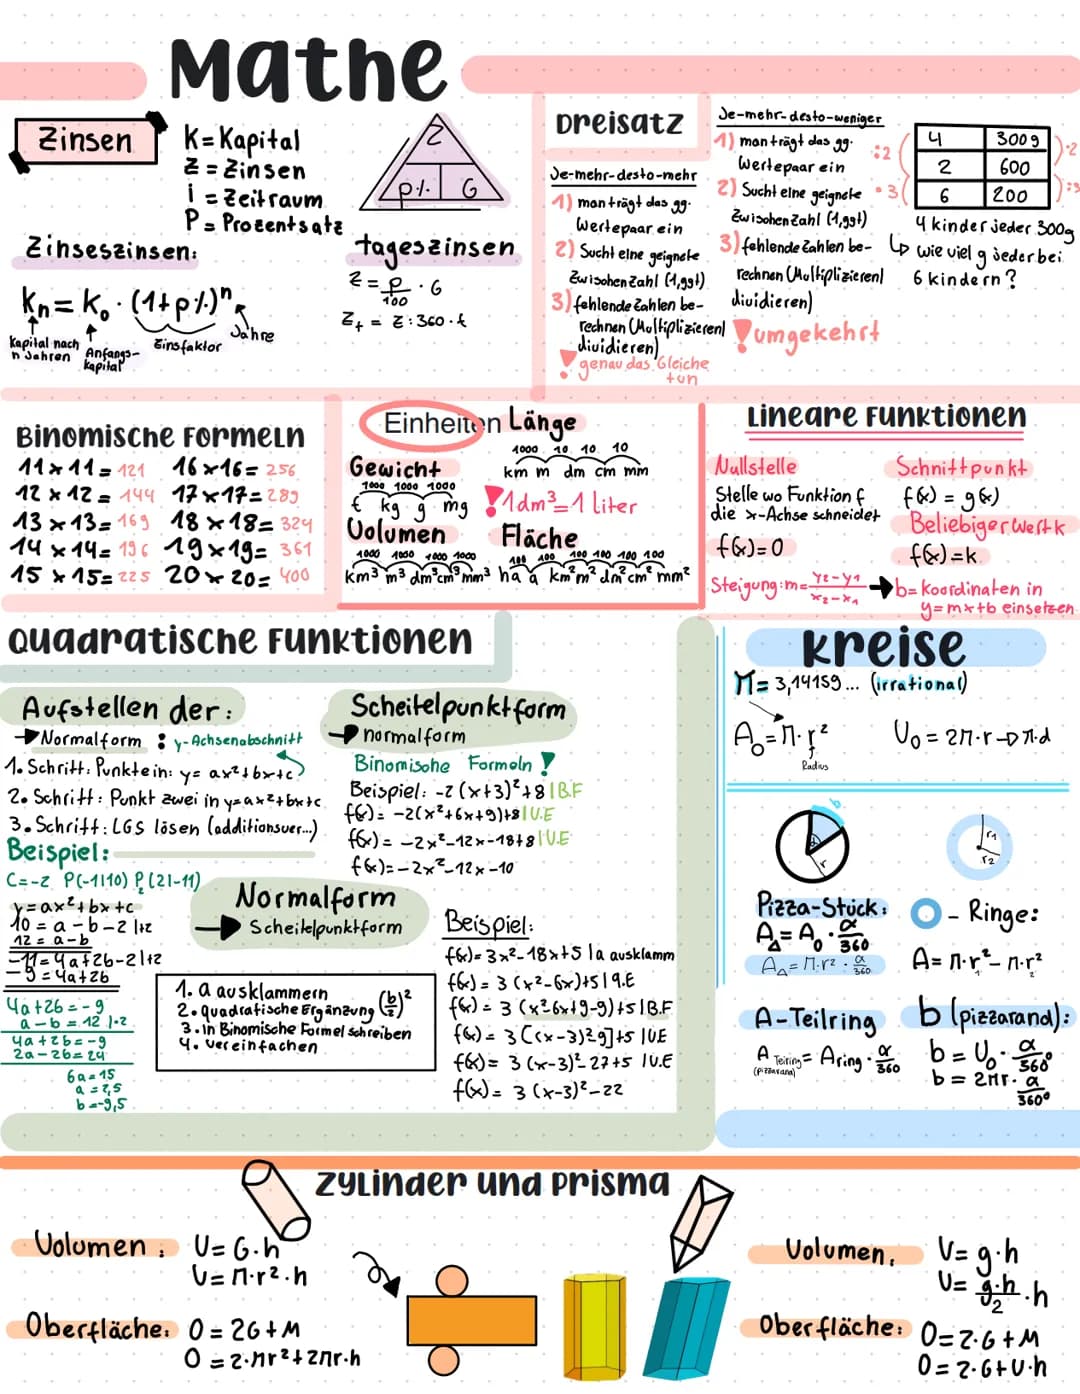 Mathe
Zinsen
K= Kapital
Z = Zinsen
i = Zeitraum
P= Prozentsatz
Z
p% G
Zinseszinsen:
Kn= K₀ · (1+p%)ⁿ
Kapital nach n Jahren
Anfangs-kapital
Zinsfaktor
Jahre
tageszinsen
Z = p/100 · G
Zt = Z:360·t
Dreisatz
Je-mehr-desto-mehr
1) man trägt das gg.
Wertepaar ein
2) Sucht eine geignete
Zwischenzahl (1,ggt)
3) fehlende Zahlen be-
rechnen (Multiplizieren/
dividieren)
! genau das Gleiche
tun
Je-mehr-desto-weniger
1) man trägt das gg.
Wertepaar ein
2) Sucht eine geignete
Zwischenzahl (1,ggt)
3) fehlende Zahlen be-
rechnen (Multiplizieren/
dividieren)
! umgekehrt
:2 4 300g ·2
2 600
·3 6 200 :3
4 kinder jeder 300g
↳ wie viel g jeder bei
6 kindern?
Binomische Formeln
11x11= 121 16x16= 256
12x12= 144 17x17= 289
13x13= 169 18x18= 324
14x14= 196 19x19= 361
15x15= 225 20x20= 400
Einheiten
Länge
1000 10 10 10
km m dm cm mm
Gewicht
1000 1000 1000
t kg g mg
! 1dm³=1 liter
Volumen
1000 1000 1000 1000
km³ m³ dm³ cm³ mm³
Fläche
100 100 100 100 100 100
ha a km² m² dm² cm² mm²
Lineare Funktionen
Nullstelle
Stelle wo Funktion f
die x-Achse schneidet
f(x)=0
Schnittpunkt
f(x) = g(x)
Beliebiger Wert k
f(x)=k
Steigung: m= y2-y1/x2-x1 → b= koordinaten in
y=mx+b einsetzen
Quadratische Funktionen
Aufstellen der:
→ Normalform : y-Achsenabschnitt
1. Schritt: Punkte in: y= ax²+bx+c
2. Schritt: Punkt zwei in y=ax²+bx+c
3. Schritt: LGS lösen (additionsver...)
Beispiel:
C=-2 P(-1|10) P₂(2|-11)
y=ax²+bx+c
10 = a-b-2 |+2
12 = a-b
-11=4a+2b-2|+2
-9=4a+2b
4a+2b=-9
a-b=12 |·2
4a+2b=-9
2a-2b=24
6a=15
a=2,5
b=-9,5
Scheitelpunktform
→ normalform
Binomische Formeln !
Beispiel: -2(x+3)²+8 |B.F
f(x)= -2(x²+6x+9)+8 |V.E
f(x)= -2x²-12x-18+8 |V.E
f(x)=-2x²-12x-10
Normalform
→ Scheitelpunktform
1. a ausklammern
2. quadratische Ergänzung (b/2)²
3. in Binomische Formel schreiben
4. vereinfachen
Beispiel:
f(x)= 3x²-18x+5 |a ausklamm
f(x)= 3(x²-6x)+5 |q.E
f(x)= 3(x²-6x+9-9)+5 |B.F
f(x)= 3[(x-3)²-9]+5 |V.E
f(x)= 3(x-3)²-27+5 |V.E
f(x)= 3(x-3)²-22
Kreise
π= 3,14159... (irrational)
A₀= π·r²
Radius
U₀= 2π·r → π·d
b
α
r
r1
r2
Pizza-Stück:
A = A₀ · α/360
A = π·r² · α/360
- Ringe:
A= π·r²-π·r²
A-Teilring
A Teilring = Aring · α/360
(pizzarand)
b (pizzarand):
b= U₀ · α/360°
b= 2πr · α/360°
Zylinder und Prisma
Volumen: V= G·h
V= π·r²·h
Oberfläche: O = 2G+M
O = 2·πr²+2πr·h
Volumen: V= g·h
V= g·h/2 ·h
Oberfläche: O=2·G+M
O=2·G+U·h